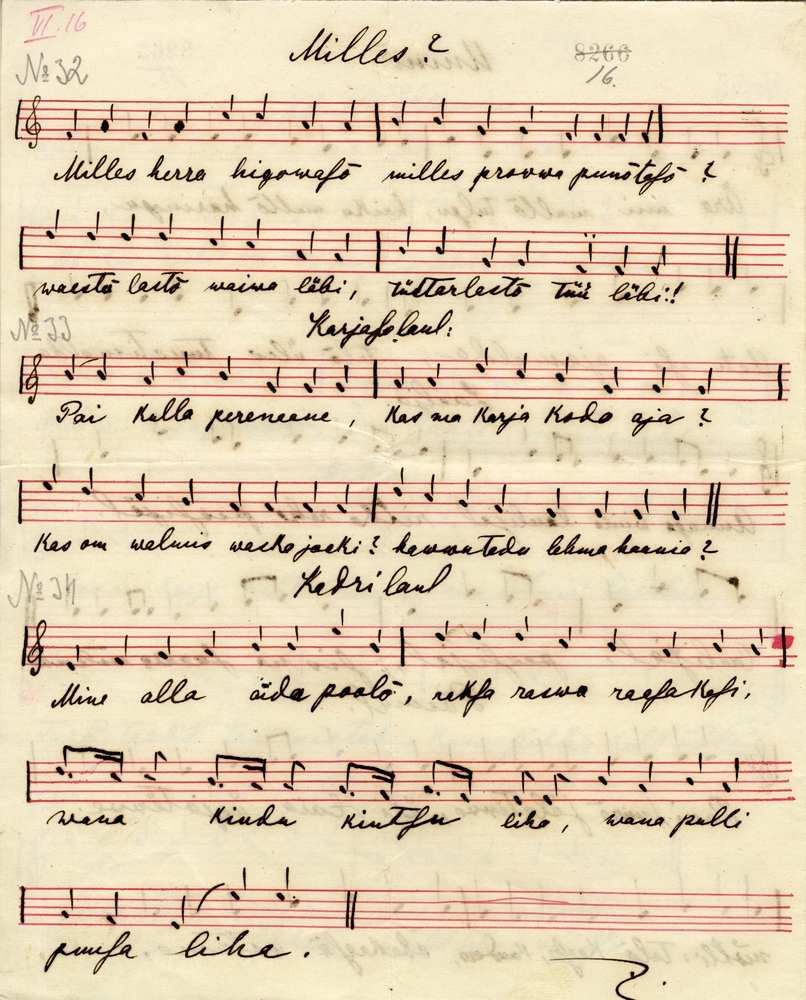 VI.16
Milles?
8266
16.
№ 32
Milles herra higowasõ milles provwa punõtasõ?
waestõ lastõ waiwa läbi, tüttarlastõ tüü läbi!!
№ 33
Karjaso laul:
Pai kulla pereneane, kas ma karja kodo aja?
Kas om walmis waske jaeki? kawwutedu lehma kaanie?
№ 34
Kadri laul
Mine alla äida poolõ, reksa raswa raasakesi,
wana kindu kintsu liha, wana pulli
puusa liha.